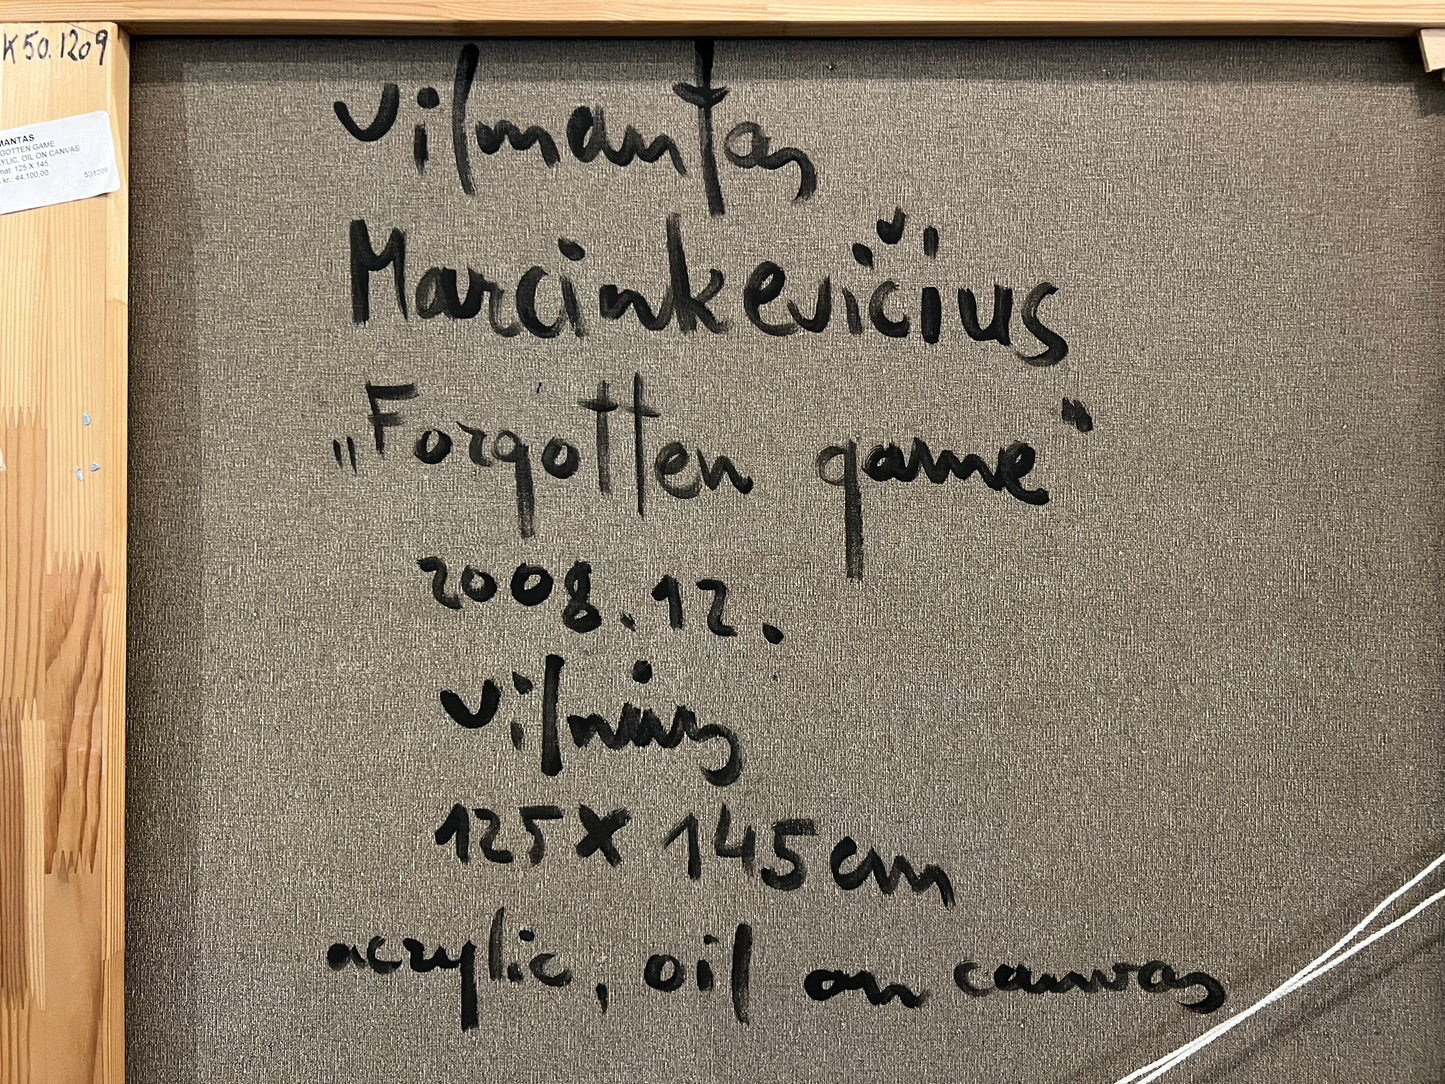 K50.1209
MANTAS
GOTTEN GAME
YLIC, OIL ON CANVAS
mat: 125 X 145
kr.: 44.100,00
501209
vilmantas
Marcinkevičius
„Forgotten game"
2008.12.
vilnius
125 X 145 cm
acrylic, oil on canvas